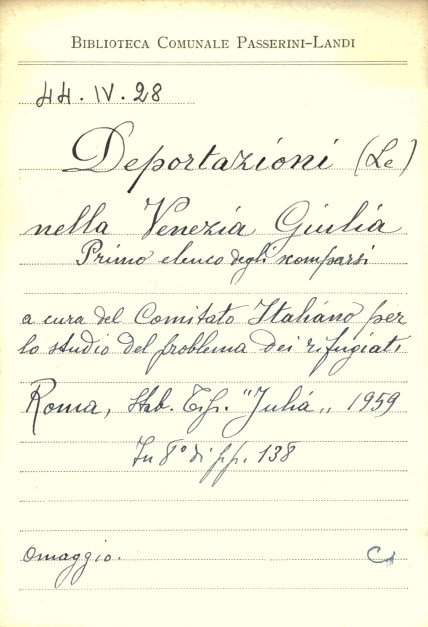 BIBLIOTECA COMUNALE PASSERINI-LANDI
44.IV.28
Deportazioni (Le)
nella Venezia Giulia
Primo elenco degli scomparsi
a cura del Comitato Italiano per
lo studio del problema dei rifugiati
Roma, Stab. Tip. "Julia„ 1959
In 8° di pp. 138
Omaggio.